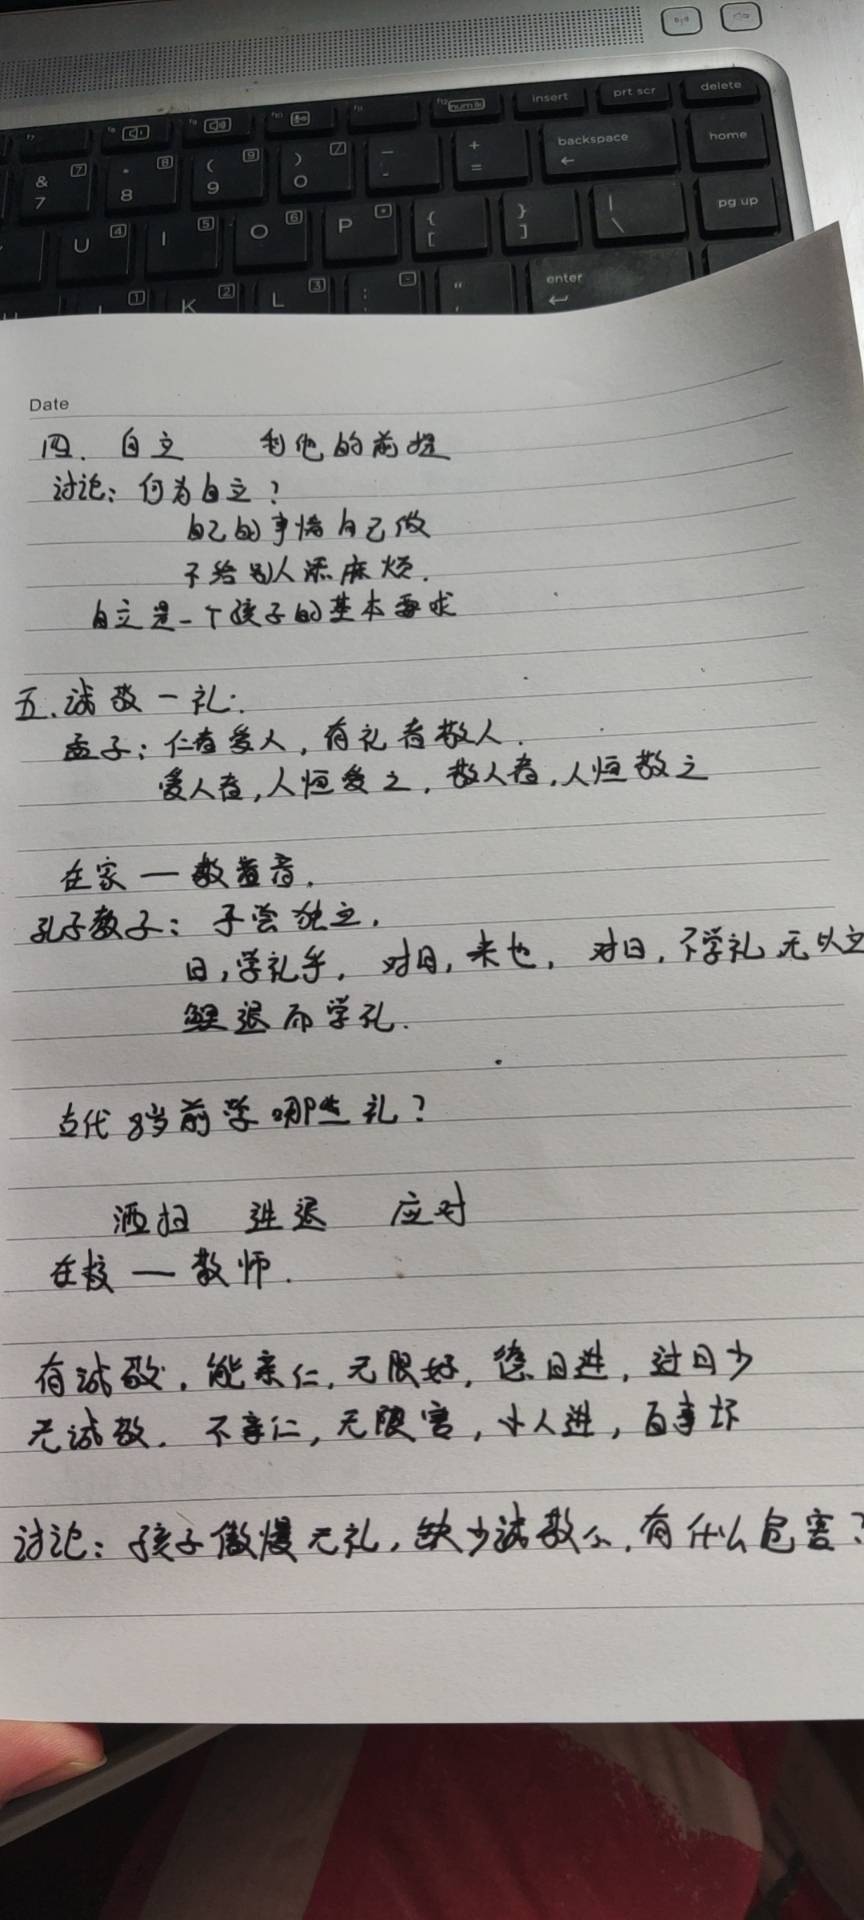 insert
prt scr
delete
backspace
home
& 7
* 8
( 9
) 0
- 
+ =
U I O P { [ } ] | \
pg up
K L : ; " '
enter
Date
四. 自立 利他的前提
讨论: 何为自立?
自己的事情自己做
不给别人添麻烦.
自立是一个孩子的基本要求
五.诚敬一礼:
孟子: 仁者爱人, 有礼者敬人.
爱人者,人恒爱之, 敬人者,人恒敬之
在家 — 敬
孔子教子: 子尝独立.
曰,学礼乎, 对曰,未也, 对曰,不学礼 无以立
鲤退而学礼.
古代8岁前学哪些礼?
洒扫 进退 应对
在校 — 敬师.
有诚敬, 能亲仁, 无限好, 德日进, 过日少
无诚敬. 不亲仁, 无限害, 小人进, 百事坏
讨论: 孩子傲慢无礼, 缺少诚敬心, 有什么危害?